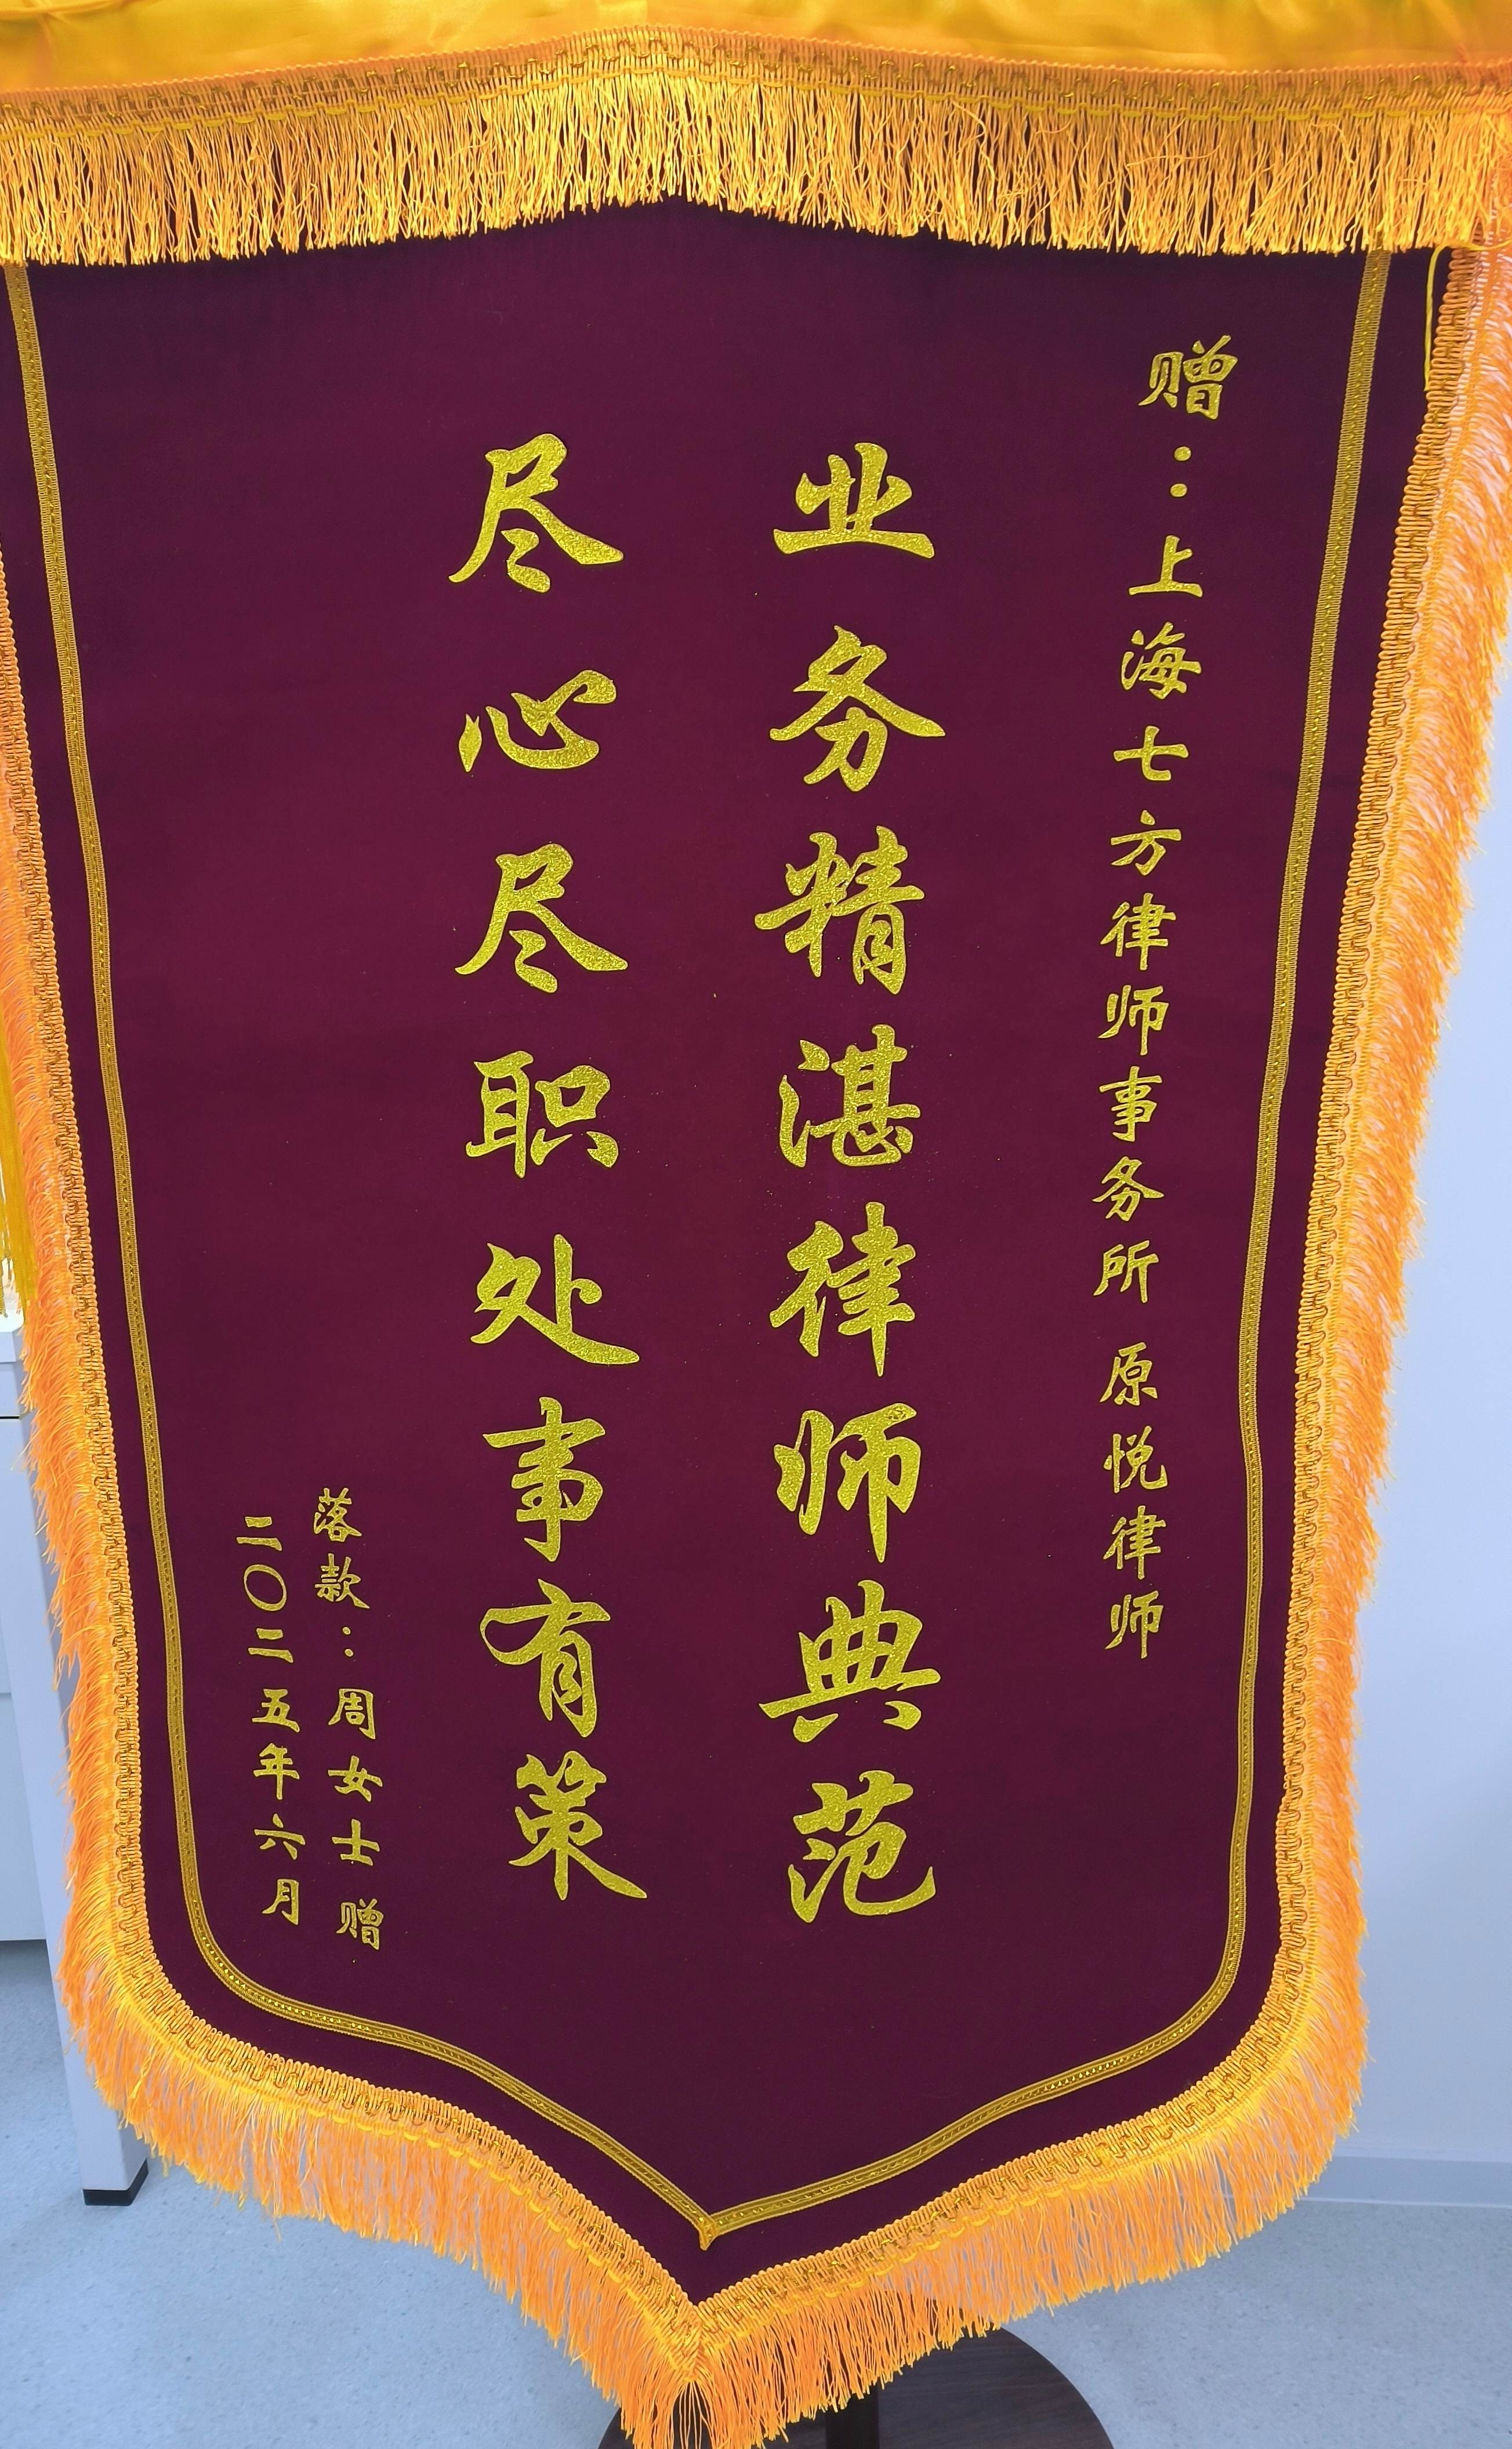 赠：上海七方律师事务所 原悦律师
业务精湛律师典范
尽心尽职处事有策
落款：周女士 赠
二〇二五年六月